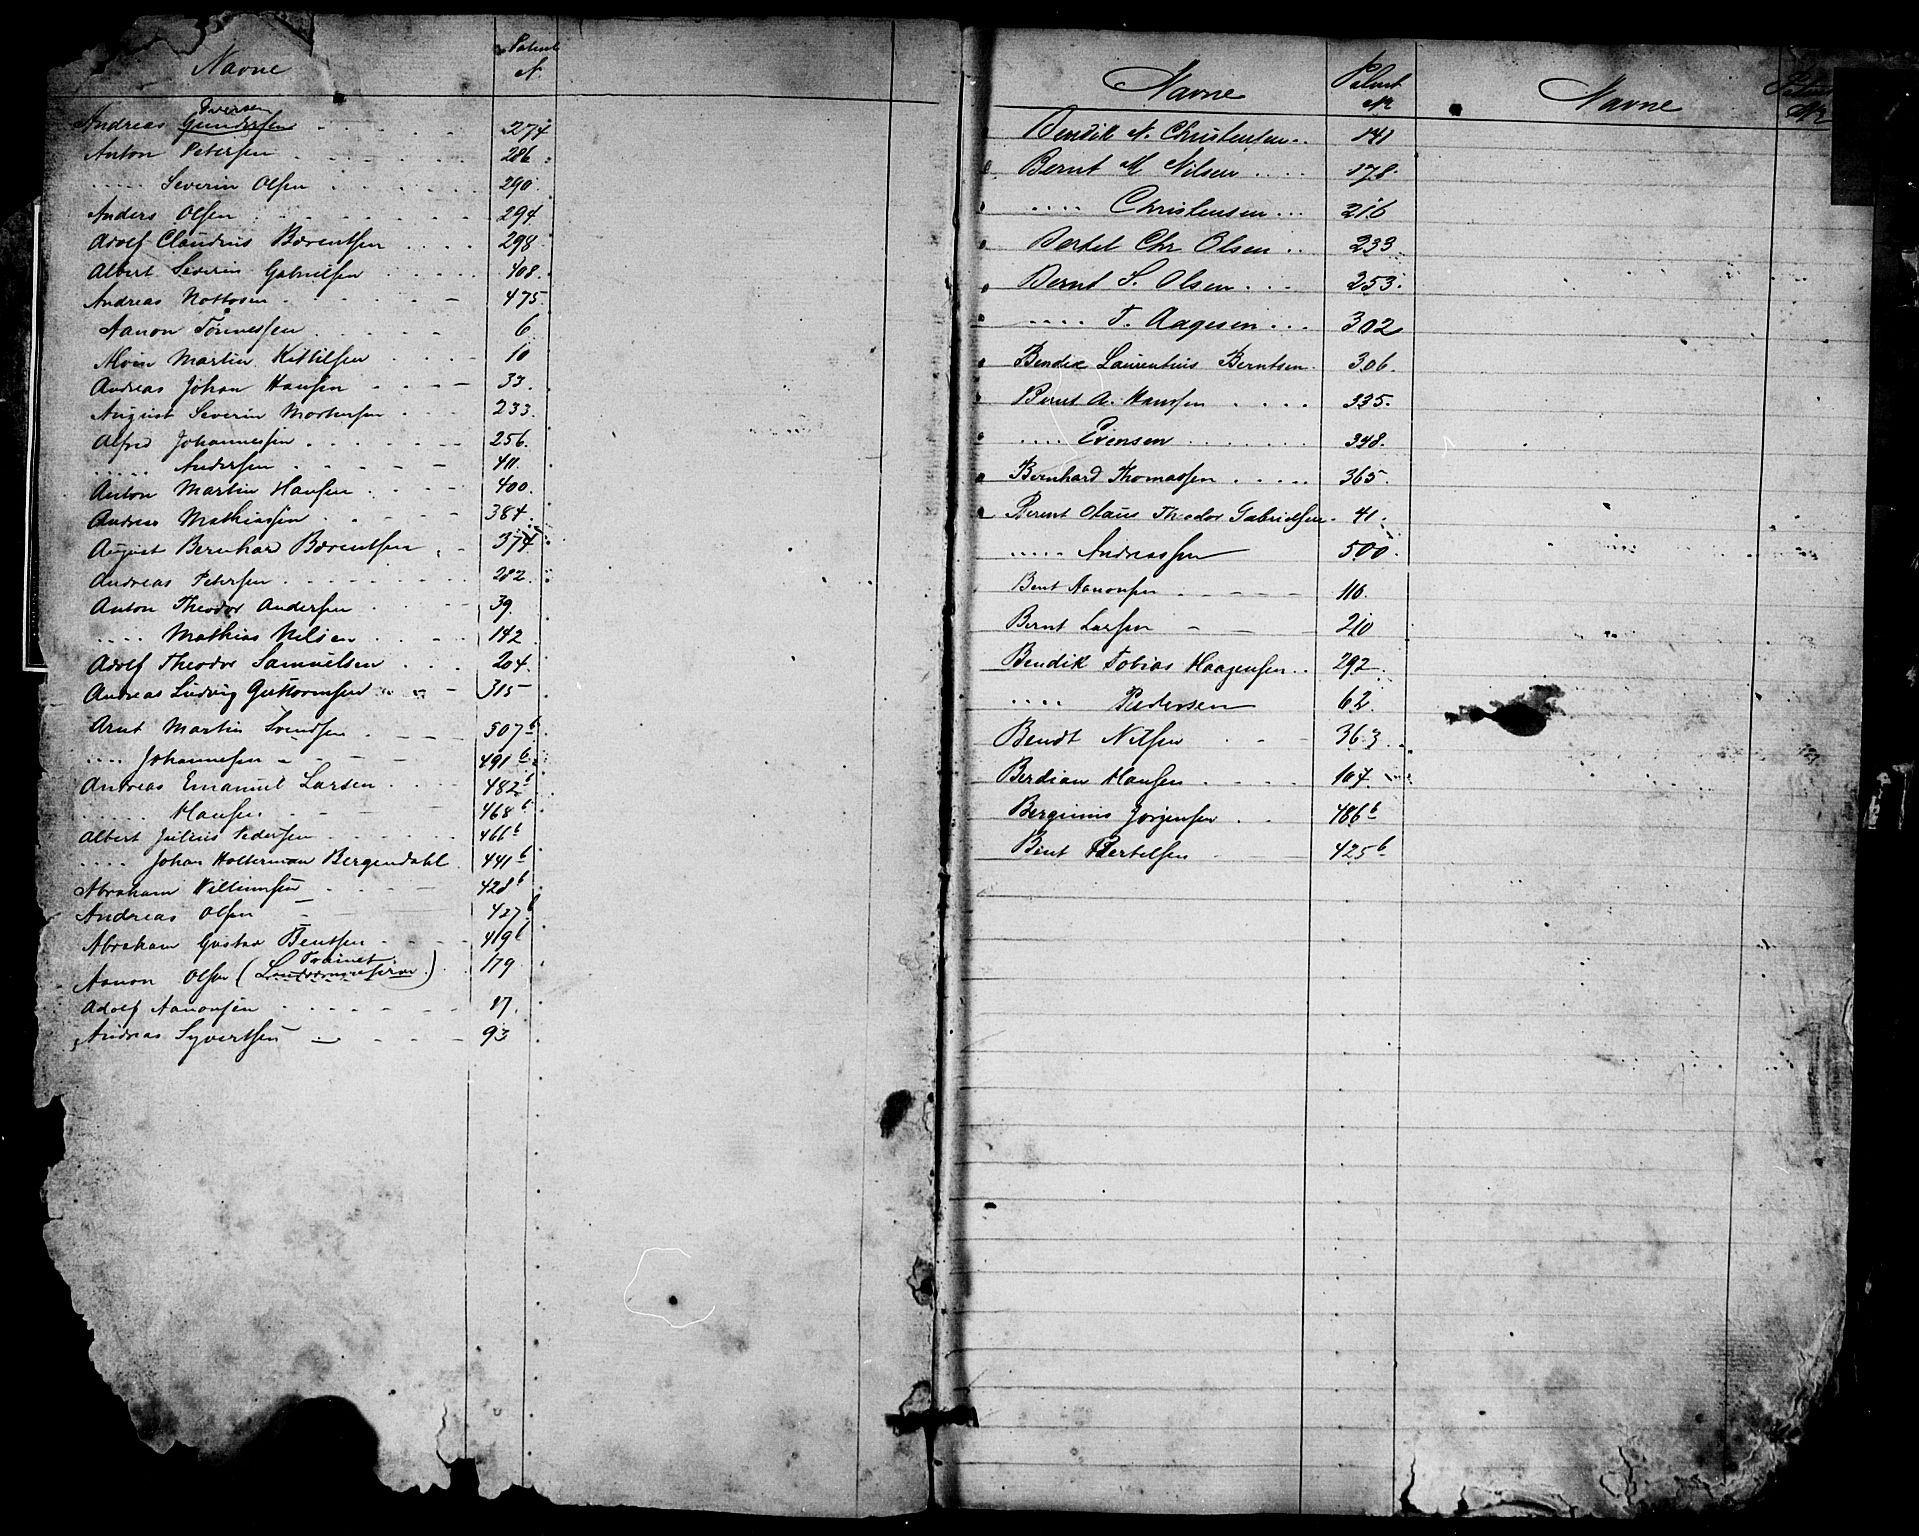 Navne Patent N.
Iversen
Andreas Gundersen 274
Anton Petersen 286
..... Severin Olsen 290
Anders Olsen 294
Adolf Claudius Bærentsen 298
Albert Severin Gabrielsen 408
Andreas Nottosen 475
Aanon Tönnessen 6
Alvin Martin Kittilsen 10
Andreas Johan Hansen 33
August Severin Mortensen 233
Alfred Johannessen 256
..... Andersen 411
Anton Martin Hansen 400
Andreas Mathiassen 384
August Bernhard Bærentsen 374
Andreas Petersen 282
Anton Theodor Andersen 39
.... Mathias Nilsen 142
Adolf Theodor Samuelsen 204
Andreas Ludvig Guttormsen 315
Arnt Martin Svendsen 507 b
.... Johannesen 491 b
Andreas Emanuel Larsen 482 b
...... Hansen 468 b
Albert Julius Pedersen 466 b
.... Johan Holterman Bergendahl 441 b
Abraham Williumsen 428 b
Andreas Olsen 427 b
Abraham Gustav Bentsen 419 b
Aanon Olsen ( ) 179
Adolf Aanonsen 17
Andreas Syvertsen 93
Navne Patent Nr Navne Patent Nr
Bendik N. Christensen 141
Bernt M Nilsen 178
.... Christensen 216
Bertel Chr Olsen 233
Bernt S. Olsen 253
.... T. Aagesen 302
Bendix Laurentius Berntsen 306
Bernt A. Hanssen 335
.... Evensen 348
Bernhard Thomassen 365
Berent Olaus Theodor Gabrielsen 41
..... Andreassen 500
Bent Aanonsen 116
Bernt Larsen 210
Bendik Tobias Haagensen 292
.... Pedersen 62
Bendt Nilsen 363
Berdian Hansen 104
Berginus Jörgensen 486 b
Bent Bertelsen 425 b